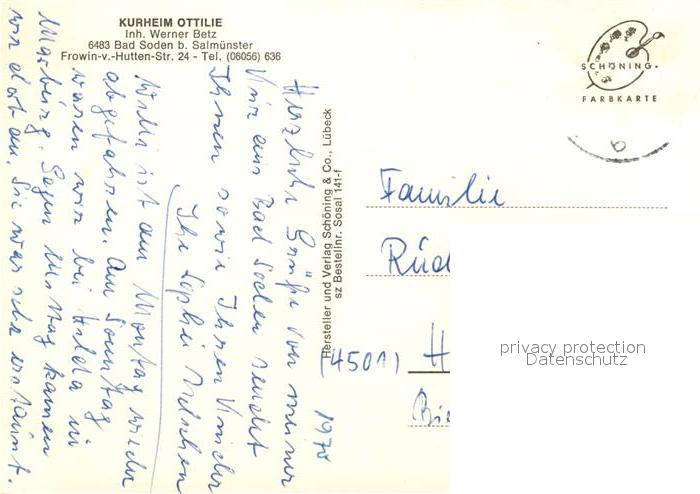 KURHEIM OTTILIE
Inh. Werner Betz
6483 Bad Soden b. Salmünster
Frowin-v.-Hutten-Str. 24 - Tel. (06056) 636
SCHÖNING
FARBKARTE
Hersteller und Verlag Schöning & Co., Lübeck
sz Bestellnr. Sosal 141-f
Herzliche Grüße von meiner
Kur aus Bad Soden sendet
Ihnen sowie Ihren Kinder
Ihre Sophie
Willi ist am Montag wieder
abgefahren. Am Sonntag
waren wir bei Hilda in
Marburg. Gegen Mittag kamen
wir dort an. Sie war sehr erstaunt.
Familie
(4501)
privacy protection
Datenschutz